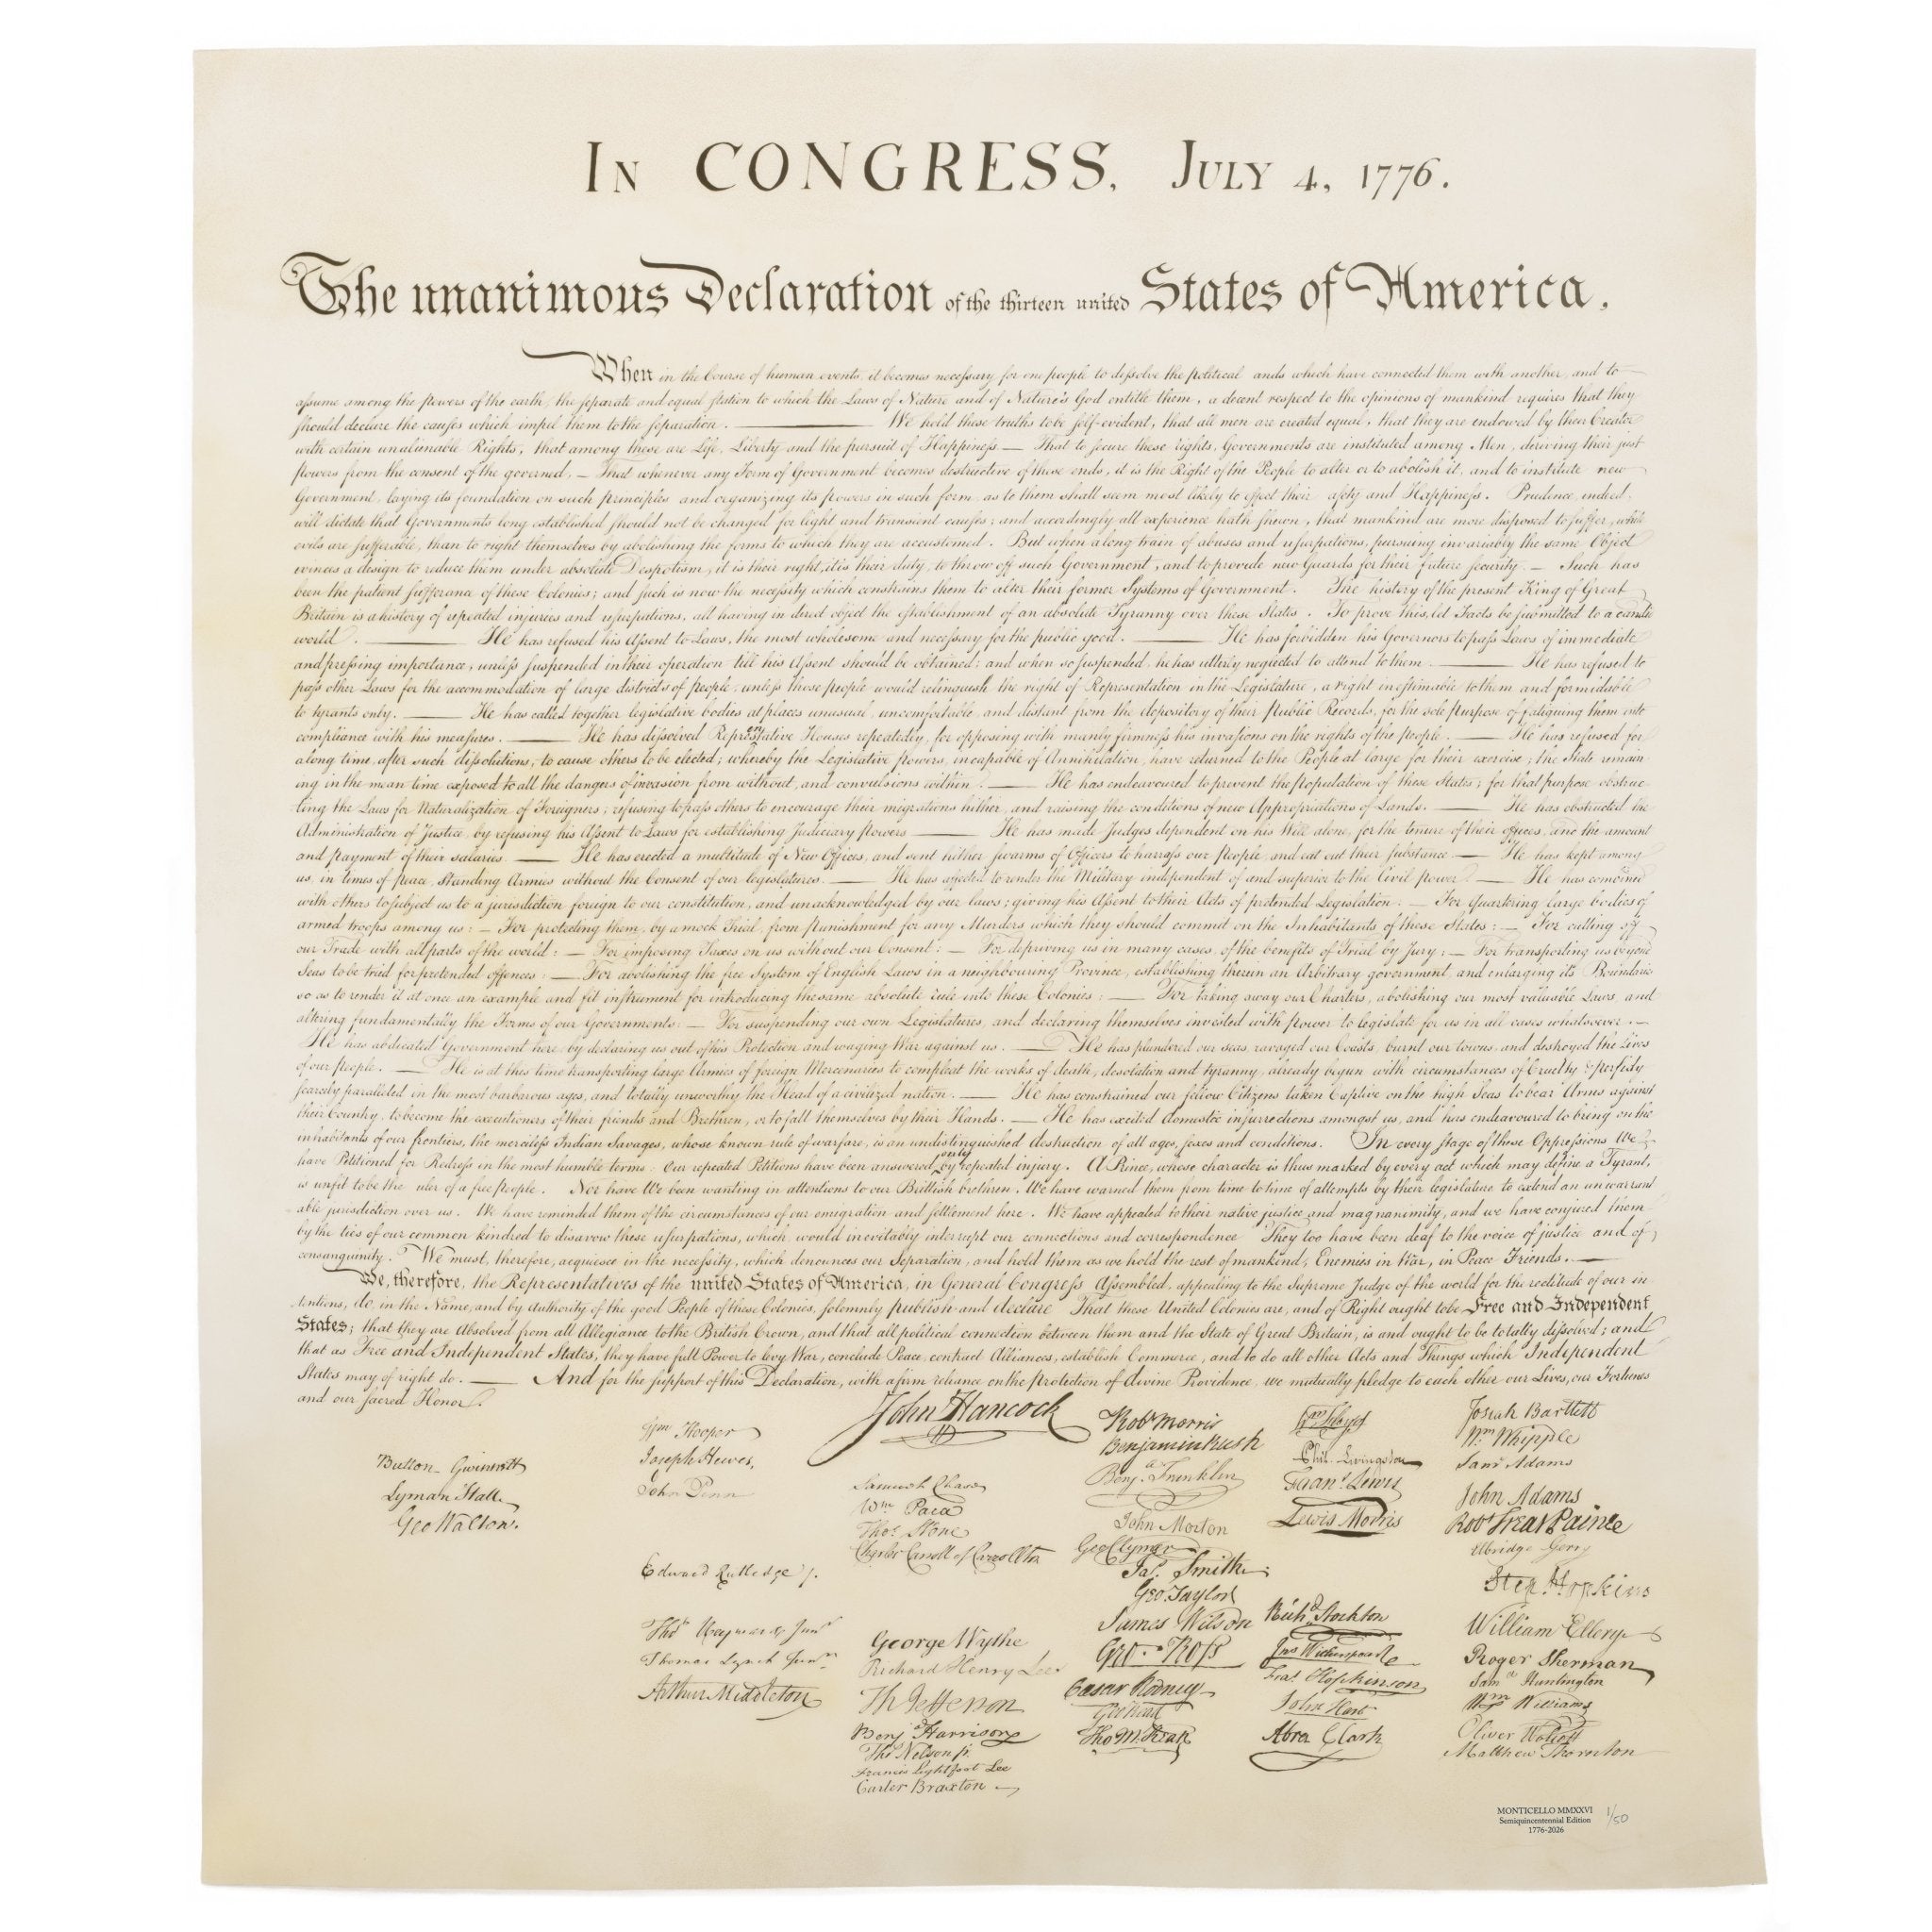 In CONGRESS, July 4, 1776.
The unanimous Declaration of the thirteen united States of America.
When in the Course of human events, it becomes necessary for one people to dissolve the political ands which have connected them with another, and to
assume among the powers of the earth, the separate and equal station to which the Laws of Nature and of Nature's God entitle them, a decent respect to the opinions of mankind requires that they
should declare the causes which impel them to the separation. — We hold these truths to be self-evident, that all men are created equal, that they are endowed by their Creator
with certain unalienable Rights, that among these are Life, Liberty and the pursuit of Happiness — That to secure these rights, Governments are instituted among Men, deriving their just
powers from the consent of the governed, — That whenever any Form of Government becomes destructive of these ends, it is the Right of the People to alter or to abolish it, and to institute new
Government, laying its foundation on such principles and organizing its powers in such form, as to them shall seem most likely to effect their afety and Happiness. Prudence, indeed,
will dictate that Governments long established should not be changed for light and transient causes; and accordingly all experience hath shewn, that mankind are more disposed to suffer, while
evils are sufferable, than to right themselves by abolishing the forms to which they are accustomed. But when a long train of abuses and usurpations, pursuing invariably the same Object
evinces a design to reduce them under absolute Despotism, it is their right, it is their duty, to throw off such Government, and to provide new Guards for their future security. — Such has
been the patient sufferance of these Colonies; and such is now the necessity which constrains them to alter their former Systems of Government. The history of the present King of Great
Britain is a history of repeated injuries and usurpations, all having in direct object the establishment of an absolute Tyranny over these States. To prove this, let Facts be submitted to a candid
world. — He has refused his Assent to Laws, the most wholesome and necessary for the public good. — He has forbidden his Governors to pass Laws of immediate
and pressing importance, unless suspended in their operation till his Assent should be obtained; and when so suspended, he has utterly neglected to attend to them. — He has refused to
pass other Laws for the accommodation of large districts of people, unless those people would relinquish the right of Representation in the Legislature, a right inestimable to them and formidable
to tyrants only. — He has called together legislative bodies at places unusual, uncomfortable, and distant from the depository of their Public Records, for the sole purpose of fatiguing them into
compliance with his measures. — He has dissolved Representative Houses repeatedly, for opposing with manly firmness his invasions on the rights of the people. — He has refused for
a long time, after such dissolutions, to cause others to be elected; whereby the Legislative powers, incapable of Annihilation, have returned to the People at large for their exercise; the State remain
ing in the mean time exposed to all the dangers of invasion from without, and convulsions within. — He has endeavoured to prevent the population of these States; for that purpose obstruc
ting the Laws for Naturalization of Foreigners; refusing to pass others to encourage their migrations hither, and raising the conditions of new Appropriations of Lands. — He has obstructed the
Administration of Justice, by refusing his Assent to Laws for establishing Judiciary powers — He has made Judges dependent on his Will alone, for the tenure of their offices, and the amount
and payment of their salaries. — He has erected a multitude of New Offices, and sent hither swarms of Officers to harrass our people, and eat out their substance. — He has kept among
us, in times of peace, Standing Armies without the Consent of our legislatures. — He has affected to render the Military independent of and superior to the Civil power. — He has combined
with others to subject us to a jurisdiction foreign to our constitution, and unacknowledged by our laws; giving his Assent to their Acts of pretended Legislation: — For Quartering large bodies of
armed troops among us: — For protecting them, by a mock Trial, from punishment for any Murders which they should commit on the Inhabitants of these States: — For cutting off
our Trade with all parts of the world: — For imposing Taxes on us without our Consent: — For depriving us in many cases, of the benefits of Trial by Jury: — For transporting us beyond
Seas to be tried for pretended offences: — For abolishing the free System of English Laws in a neighbouring Province, establishing therein an Arbitrary government, and enlarging its Boundaries
so as to render it at once an example and fit instrument for introducing the same absolute rule into these Colonies: — For taking away our Charters, abolishing our most valuable Laws, and
altering fundamentally the Forms of our Governments: — For suspending our own Legislatures, and declaring themselves invested with power to legislate for us in all cases whatsoever. —
He has abdicated Government here, by declaring us out of his Protection and waging War against us. — He has plundered our seas, ravaged our Coasts, burnt our towns, and destroyed the Lives
of our people. — He is at this time transporting large Armies of foreign Mercenaries to compleat the works of death, desolation and tyranny, already begun with circumstances of Cruelty & perfidy
scarcely paralleled in the most barbarous ages, and totally unworthy the Head of a civilized nation. — He has constrained our fellow Citizens taken Captive on the high Seas to bear Arms against
their Country, to become the executioners of their friends and Brethren, or to fall themselves by their Hands. — He has excited domestic insurrections amongst us, and has endeavoured to bring on the
inhabitants of our frontiers, the merciless Indian Savages, whose known rule of warfare, is an undistinguished destruction of all ages, sexes and conditions. In every stage of these Oppressions We
have Petitioned for Redress in the most humble terms: Our repeated Petitions have been answered only by repeated injury. A Prince, whose character is thus marked by every act which may define a Tyrant,
is unfit to be the uler of a free people. Nor have We been wanting in attentions to our Brittish brethren. We have warned them from time to time of attempts by their legislature to extend an unwarrant
able jurisdiction over us. We have reminded them of the circumstances of our emigration and settlement here. We have appealed to their native justice and magnanimity, and we have conjured them
by the ties of our common kindred to disavow these usurpations, which, would inevitably interrupt our connections and correspondence They too have been deaf to the voice of justice and of
consanguinity. We must, therefore, acquiesce in the necessity, which denounces our Separation, and hold them, as we hold the rest of mankind, Enemies in War, in Peace Friends. —
We, therefore, the Representatives of the united States of America, in General Congress, Assembled, appealing to the Supreme Judge of the world for the rectitude of our in
tentions, do, in the Name, and by Authority of the good People of these Colonies, solemnly publish and declare, That these United Colonies are, and of Right ought to be Free and Independent
States; that they are Absolved from all Allegiance to the British Crown, and that all political connection between them and the State of Great Britain, is and ought to be totally dissolved; and
that as Free and Independent States, they have full Power to levy War, conclude Peace, contract Alliances, establish Commerce, and to do all other Acts and Things which Independent
States may of right do. — And for the support of this Declaration, with a firm reliance on the protection of divine Providence, we mutually pledge to each other our Lives, our Fortunes
and our sacred Honor.
Button Gwinnett
Lyman Hall
Geo Walton.
Wm Hooper
Joseph Hewes,
John Penn
Edward Rutledge
Thos Heyward Junr
Thomas Lynch Junr
Arthur Middleton
John Hancock
Samuel Chase
Wm Paca
Thos Stone
Charles Carroll of Carrollton
George Wythe
Richard Henry Lee
Th Jefferson
Benj Harrison
Thos Nelson jr.
Francis Lightfoot Lee
Carter Braxton
Robt Morris
Benjamin Rush
Benj. Franklin
John Morton
Geo Clymer
Jas. Smith
Geo. Taylor
James Wilson
Geo. Ross
Caesar Rodney
Geo Read
Tho M. Kean
Wm Floyd
Phil. Livingston
Frans. Lewis
Lewis Morris
Richd. Stockton
Jno Witherspoon
Fras. Hopkinson
John Hart
Abra Clark
Josiah Bartlett
Wm Whipple
Saml Adams
John Adams
Robt Treat Paine
Elbridge Gerry
Step. Hopkins
William Ellery
Roger Sherman
Saml Huntington
Wm Williams
Oliver Wolcott
Matthew Thornton
MONTICELLO MMXXVI 1/50
Semiquincentennial Edition
1776-2026